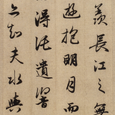 羨長江之無
遊抱明月而
得託遺響
亦知夫水與